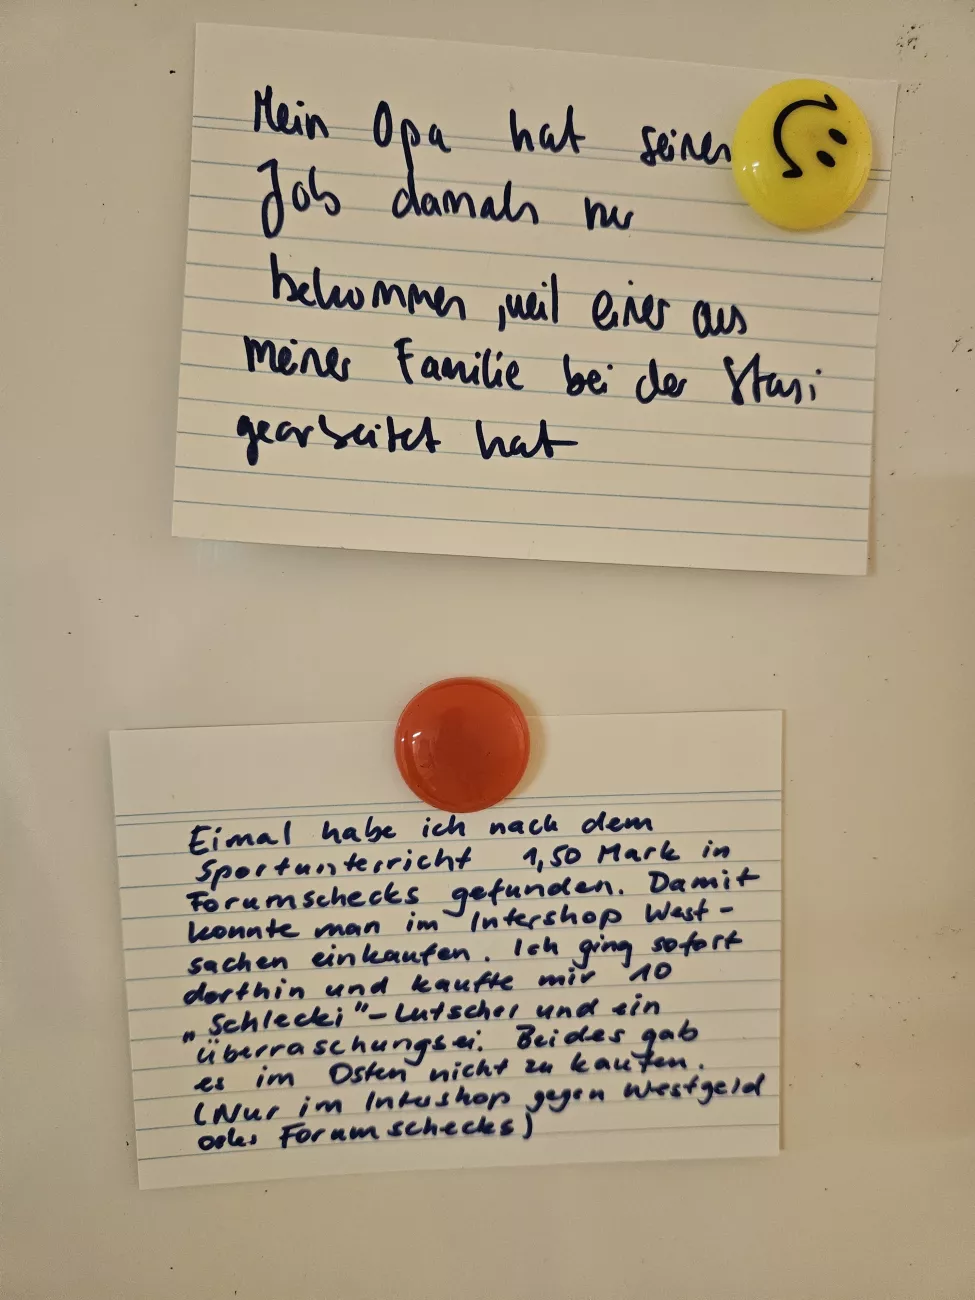 Mein Opa hat seinen
Job damals nur
bekommen, weil einer aus
meiner Familie bei der Stasi
gearbeitet hat
Eimal habe ich nach dem
Sportunterricht 1,50 Mark in
Forumschecks gefunden. Damit
konnte man im Intershop West-
sachen einkaufen. Ich ging sofort
dorthin und kaufte mir 10
„Schlecki"-Lutscher und ein
Überraschungsei. Beides gab
es im Osten nicht zu kaufen.
(Nur im Intershop gegen Westgeld
oder Forumschecks)